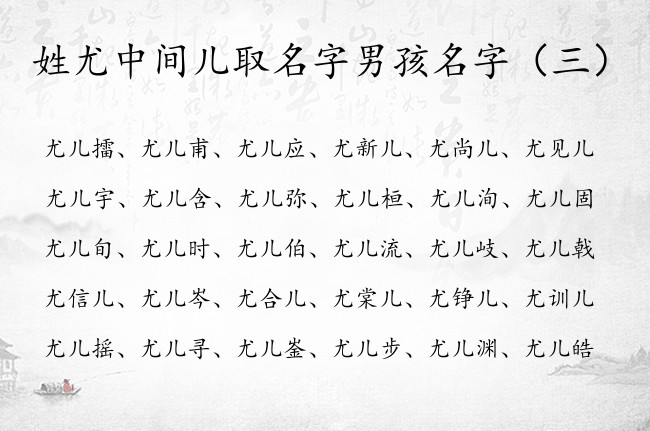 姓尤中间儿取名字男孩名字（三）
尤儿擂、尤儿甫、尤儿应、尤新儿、尤尚儿、尤见儿
尤儿宇、尤儿含、尤儿弥、尤儿桓、尤儿洵、尤儿固
尤儿旬、尤儿时、尤儿伯、尤儿流、尤儿岐、尤儿戟
尤信儿、尤儿岑、尤合儿、尤棠儿、尤铮儿、尤训儿
尤儿摇、尤儿寻、尤儿崟、尤儿步、尤儿渊、尤儿皓